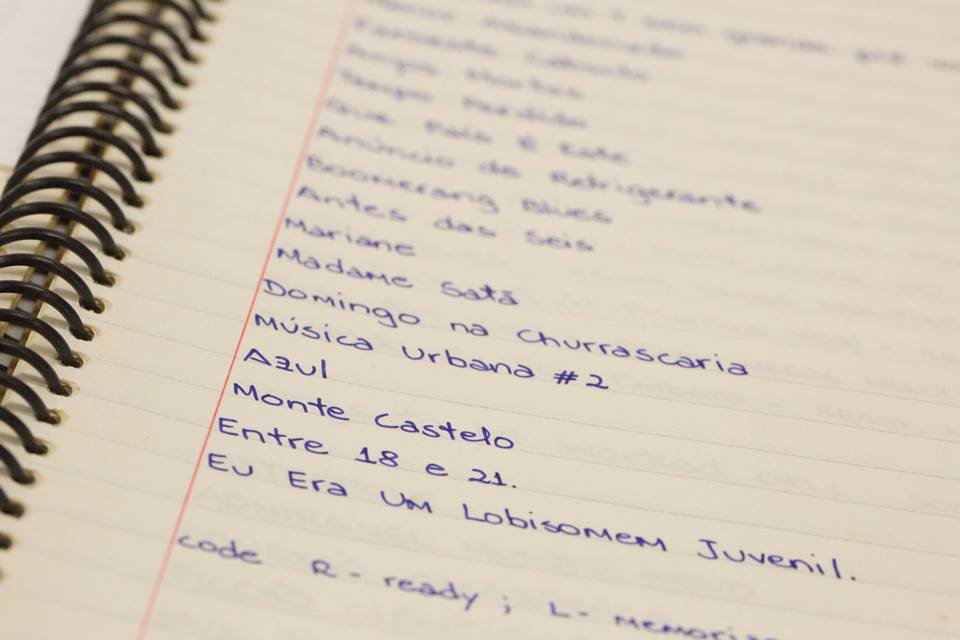 Tempo Perdido
Que País É Este
Anúncio de Refrigerante
Boomerang Blues
Antes das Seis
Mariane
Madame Satã
Domingo na Churrascaria
Música Urbana #2
Azul
Monte Castelo
Entre 18 e 21.
Eu Era Um Lobisomem Juvenil.
code R - ready; L -